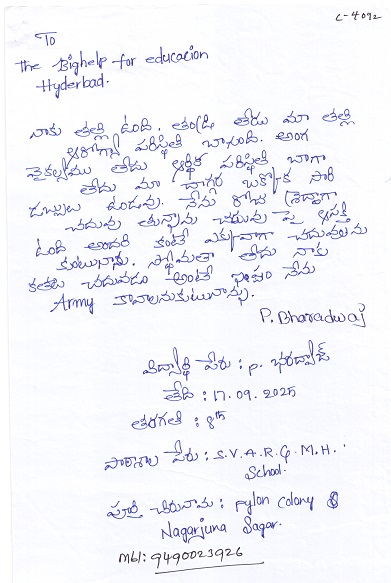 L-4092
To
The Bighelp for educacion
Hyderbad.
నాకు తల్లి ఉంది. తండ్రి లేరు మా తల్లి
ఆరోగ్య పరిస్థితి బాగుంది. అంగ
వైకల్యము లేదు ఆర్థిక పరిస్థితి బాగా
లేదు మా దాగ్గర ఒక్కొక సారి
డబ్బులు ఉండవు. నేను రోజు శ్రద్దాగా
చదువు తున్నాను చదువు పై ఆసక్తి
ఉంది అందరి కంటే ఎక్కువాగా చదువలను
కుంటునాను. స్థోమతా లేదు నాకు
కథలు చదవడం అంటే ఇష్టం నేను
Army కావాలనుకుటునాన్ను.
P. Bharadwaj
విద్యార్థి పేరు : p. భరద్వాజ్
తేది : 17.09.2025
తరగతి : 8th
పాఠశాల పేరు : S.V.A.R.G.M.H.
School.
పూర్తి చిరునామ : pylon colony
Nagarjuna Sagar.
Mbl: 9490023926